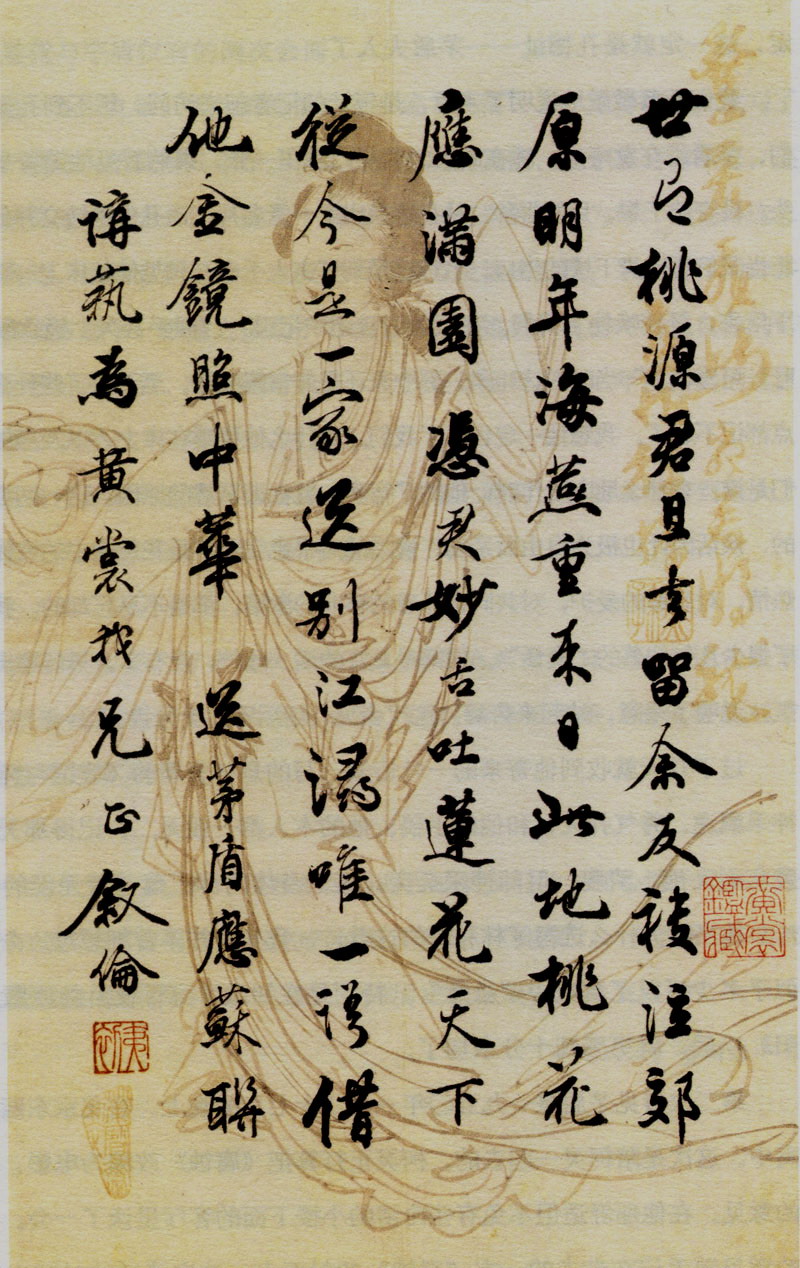 世有桃源君且去留余反袂泣郊
原明年海燕重来日此地桃花
應滿園憑君妙舌吐蓮花天下
從今是一家送别江潯唯一語借
他金鏡照中華 送茅盾應蘇聯
講蓺為黄裳我兄正叙倫
黄裳鑑藏
夷初